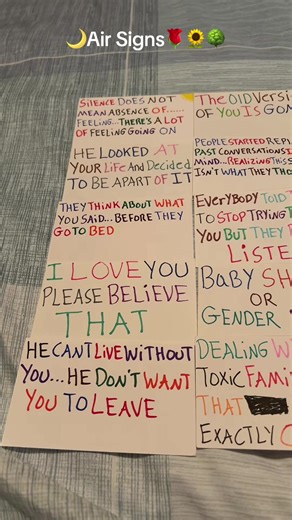 🌙Air Signs🌹🌻🌳
SILENCE DOES NOT
MEAN ABSENCE OF......
FEELING...THERE'S A LOT
OF FEELING GOING ON
HE LOOKED AT
YOUR LIFE AND DECIDED
TO BE APART OF IT
THEY THINK ABOUT WHAT
YOU SAID... BEFORE THEY
GO TO BED
I LOVE YOU
PLEASE BELIEVE
THAT
HE CANT LIVE WITHOUT
YOU...HE DON'T WANT
YOU TO LEAVE
The OLD Versi
OF YOU IS GO
PEOPLE STARTED REPL
PAST CONVERSATIONS I
MIND...REALIZING THIS S
ISN'T WHAT THEY THO
EVERYBODY TOLD T
TO STOP TRYING
YOU BUT THEY
LISTE
BABY SH
OR
GENDER
DEALING W
TOXIC FAMI
THAT
EXACTLY